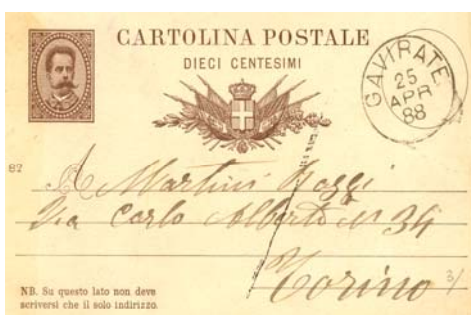 CARTOLINA POSTALE
DIECI CENTESIMI
GAVIRATE
25
APR
88
82
A Martini Rossi
Via Carlo Alberto N 34
Torino
3/
NB. Su questo lato non deve
scriversi che il solo indirizzo.